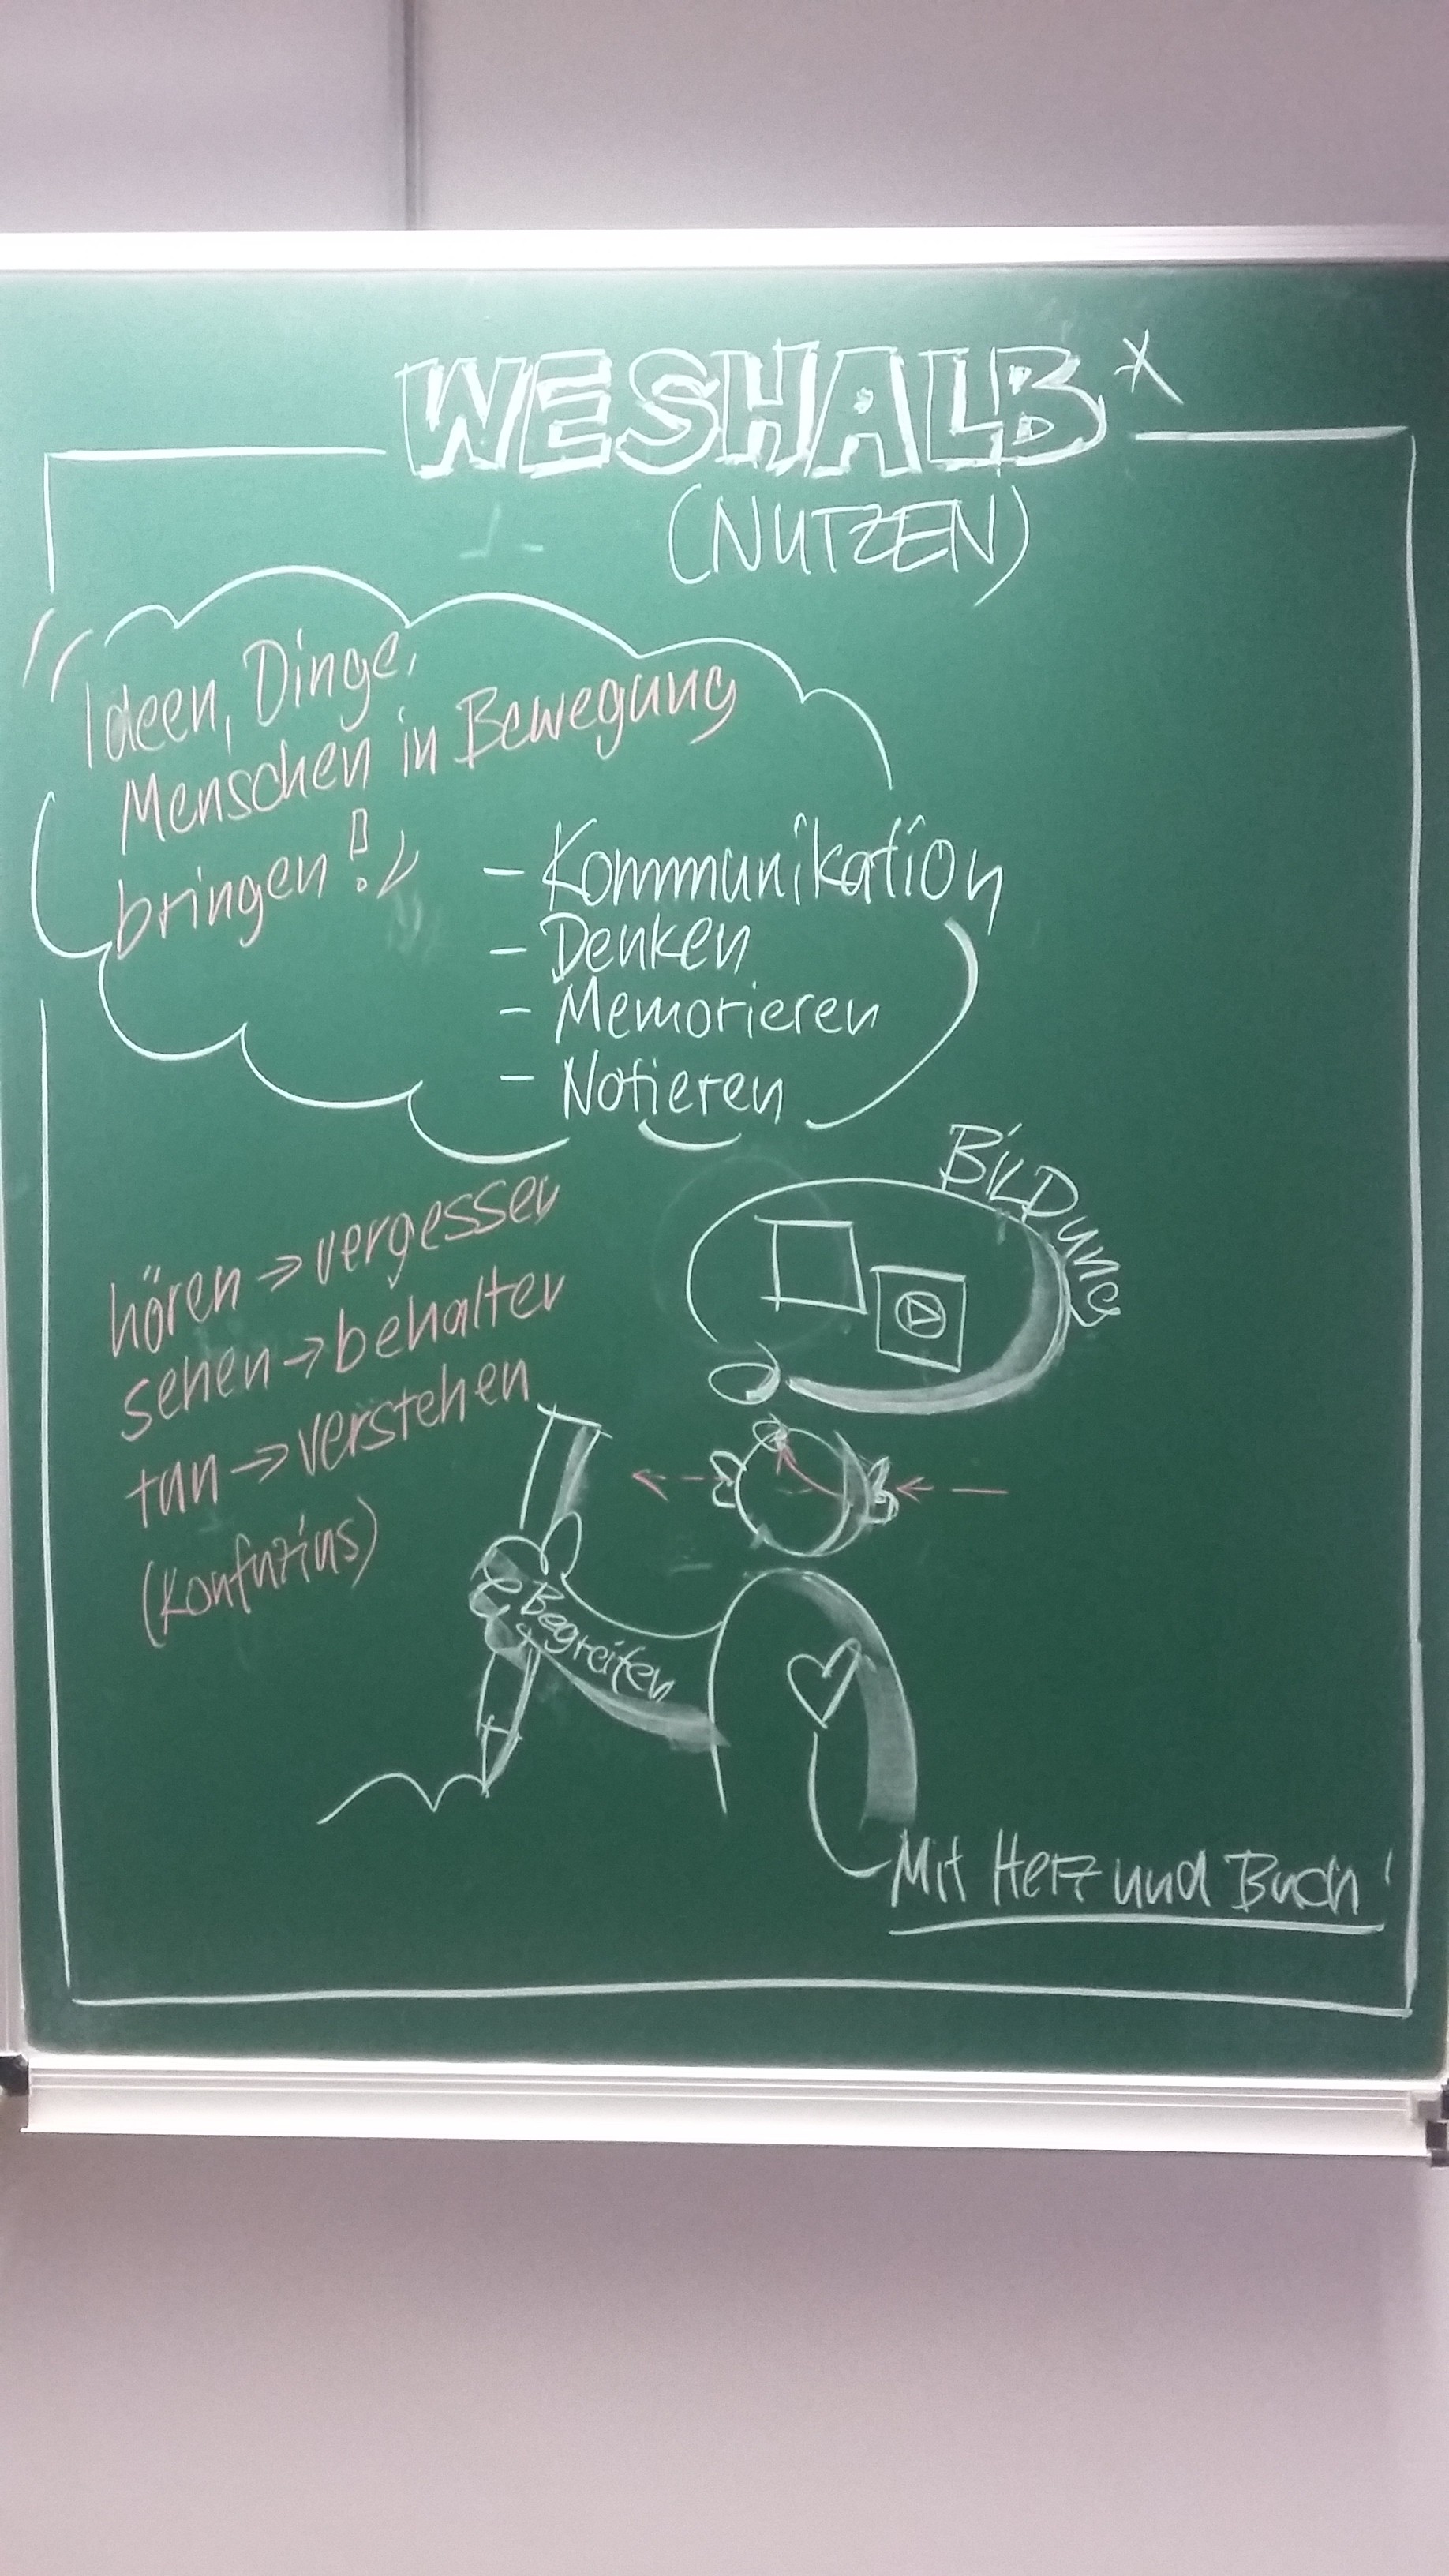 WESHALB*
(NUTZEN)
"Ideen, Dinge,
Menschen in Bewegung
bringen!"
- Kommunikation
- Denken
- Memorieren
- Notieren
BILDung
hören → vergessen
sehen → behalten
tun → verstehen
(Konfuzius)
Begreifen
Mit Herz und Buch!